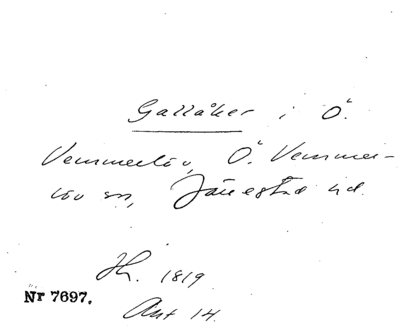 Gallåker i Ö.
Vemmerlöv, Ö. Vemmer-
löv sn, Järrestad hd.
Hh. 1819
Nr 7697.
Akt 14.